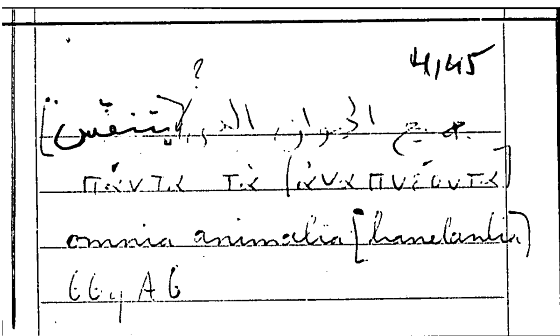 ?
4,45
جميع الحيوان الذى [يتنفس]
πάντα τὰ [ἀναπνέοντα]
omnia animalia [hanelantia]